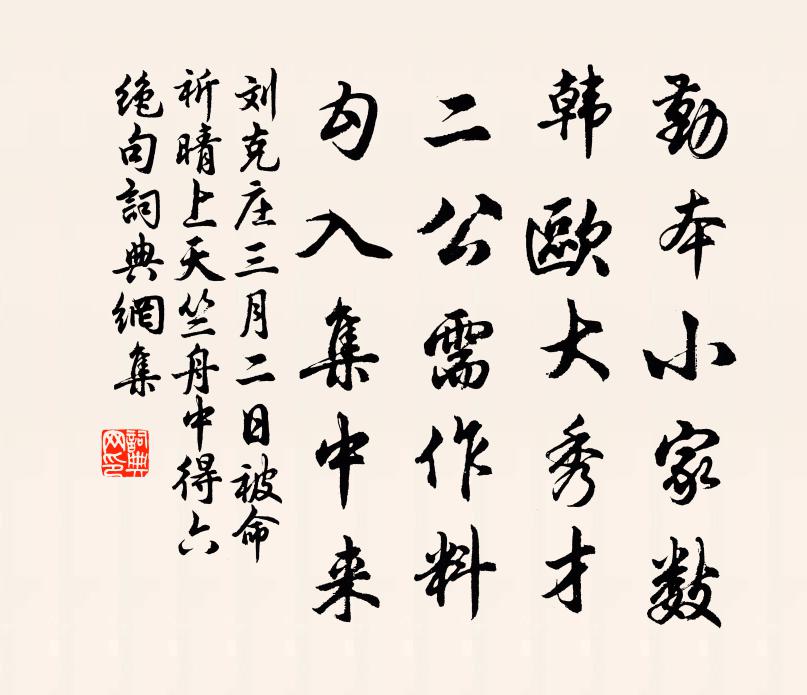 勤本小家数
韩歐大秀才
二公需作料
勾入集中来
刘克庄三月二日被命
祈晴上天竺舟中得六
绝句詞典網集
詞典
网印